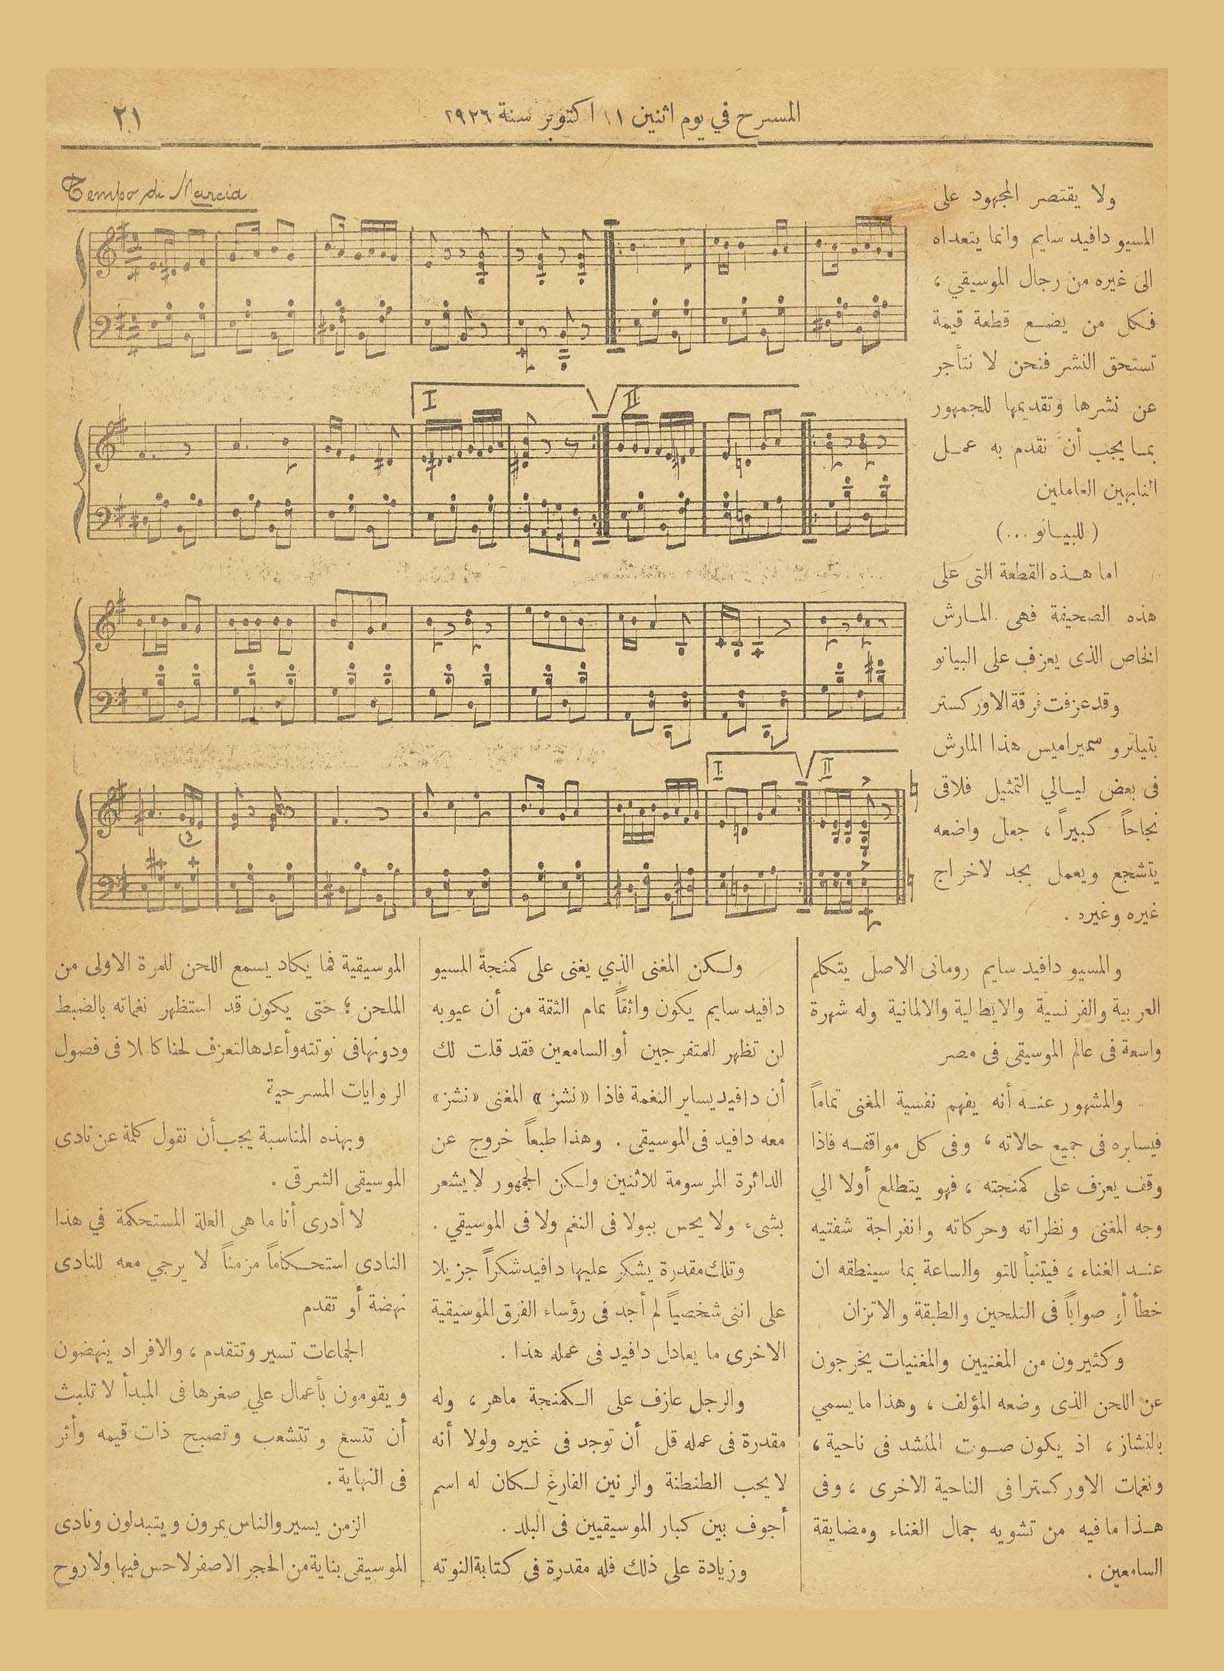 ٢١
المسرح في يوم اثنين ١١ اكتوبر سنة ١٩٢٦
Tempo di Marcia
ولا يقتصر المجهود على
المسيو دافيد سايم وانما يتعداه
الى غيره من رجال الموسيقي ،
فكل من يضع قطعة قيمة
تستحق النشر فنحن لا نتأجر
عن نشرها وتقديمها للجمهور
بما يجب أن نقدم به عمل
النابهين العاملين
( للبيانو ... )
اما هذه القطعة التى على
هذه الصحيفة فهى المارش
الخاص الذى يعزف على البيانو
وقد عزفت فرقة الاوركستر
بتياترو سميراميس هذا المارش
فى بعض ليالي التمثيل فلاقى
نجاحاً كبيراً ، جعل واضعه
يتشجع ويعمل بجد لاخراج
غيره وغيره .
I
II
I
II
والمسيو دافيد سايم رومانى الاصل يتكلم
العربية والفرنسية والايطالية والالمانية وله شهرة
واسعة فى عالم الموسيقى فى مصر
والمشهور عنه أنه يفهم نفسية المغنى تماماً
فيسايره فى جميع حالاته ، وفى كل مواقفه فاذا
وقف يعزف على كمنجته ، فهو يتطلع أولا الي
وجه المغنى ونظراته وحركاته وانفراجة شفتيه
عند الغناء ، فيتنبأ للتو والساعة بما سينطقه ان
خطأ أو صواباً فى التلحين والطبقة والاتزان
وكثيرون من المغنيين والمغنيات يخرجون
عن اللحن الذى وضعه المؤلف ، وهذا ما يسمي
بالنشاز ، اذ يكون صوت المنشد فى ناحية ،
ونغمات الاوركسترا فى الناحية الاخرى ، وفى
هذا ما فيه من تشويه جمال الغناء ومضايقة
السامعين .
ولكن المغنى الذي يغنى على كمنجة المسيو
دافيد سايم يكون واثقاً تمام الثقة من أن عيوبه
لن تظهر للمتفرجين أو السامعين فقد قلت لك
أن دافيد يساير النغمة فاذا «نشز» المغنى «نشز»
معه دافيد فى الموسيقى . وهذا طبعاً خروج عن
الدائرة المرسومة للاثنين ولكن الجمهور لا يشعر
بشىء ولا يحس بيولا فى النغم ولا فى الموسيقي .
وتلك مقدرة يشكر عليها دافيد شكراً جزيلا
على اننى شخصياً لم أجد فى رؤساء الفرق الموسيقية
الاخرى ما يعادل دافيد فى عمله هذا .
والرجل عازف على الكمنجة ماهر ، وله
مقدرة فى عمله قل أن توجد فى غيره ولولا أنه
لا يحب الطنطنة والرنين الفارغ لكان له اسم
أجوف بين كبار الموسيقيين فى البلد .
وزيادة على ذلك فله مقدرة فى كتابة النوته
الموسيقية فما يكاد يسمع اللحن للمرة الاولى من
الملحن ؛ حتى يكون قد استظهر نغماته بالضبط
ودونها فى نوتته وأعدها لتعزف لحنا كاملا فى فصول
الروايات المسرحية
وبهذه المناسبة يجب أن نقول كلمة عن نادى
الموسيقى الشرقى .
لا أدرى أنا ما هى العلة المستحكمة في هذا
النادى استحكاماً مزمناً لا يرجي معه للنادى
نهضة أو تقدم
الجماعات تسير وتتقدم ، والافراد ينهضون
ويقومون بأعمال علي صغرها فى المبدأ لا تلبث
أن تتسع وتتشعب وتصبح ذات قيمه وأثر
فى النهاية .
الزمن يسير والناس يمرون ويتبدلون ونادى
الموسيقى بناية من الحجر الاصفر لا حس فيها ولا روح